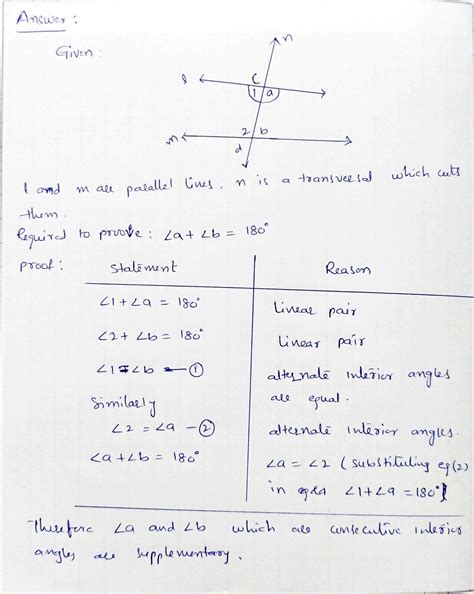 Answer :
Given :
n
l
C
1 a
2 b
m
d
l and m are parallel lines, n is a transversal which cuts
them.
Required to proove : ∠a + ∠b = 180°
proof :
Statement Reason
∠1 + ∠a = 180° Linear pair
∠2 + ∠b = 180° Linear pair
∠1 = ∠b — ① alternate interior angles
are equal.
Similarly
∠2 = ∠a — ② alternate interior angles.
∠a + ∠b = 180° ∠a = ∠2 (substituting eq(2)
in ∠1 + ∠a = 180°)
Therefore ∠a and ∠b which are consecutive interior
angles are supplementary.